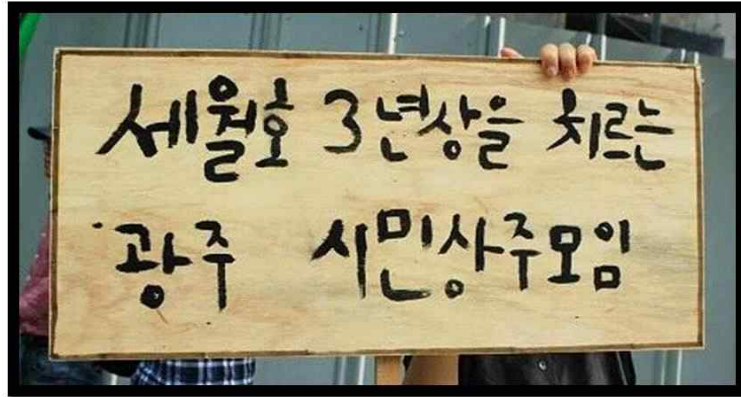 세월호 3년상을 치르는
광주 시민상주모임